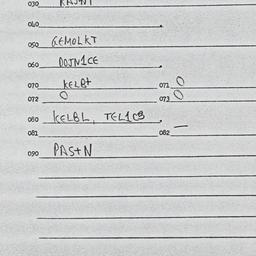 030
040
050 GEMOLKT
060 DOJN1CE
070 KELB+ 071 0
072 0 073 0
080 KELBL, TEL1CB
081 082 —
090 PAS+N